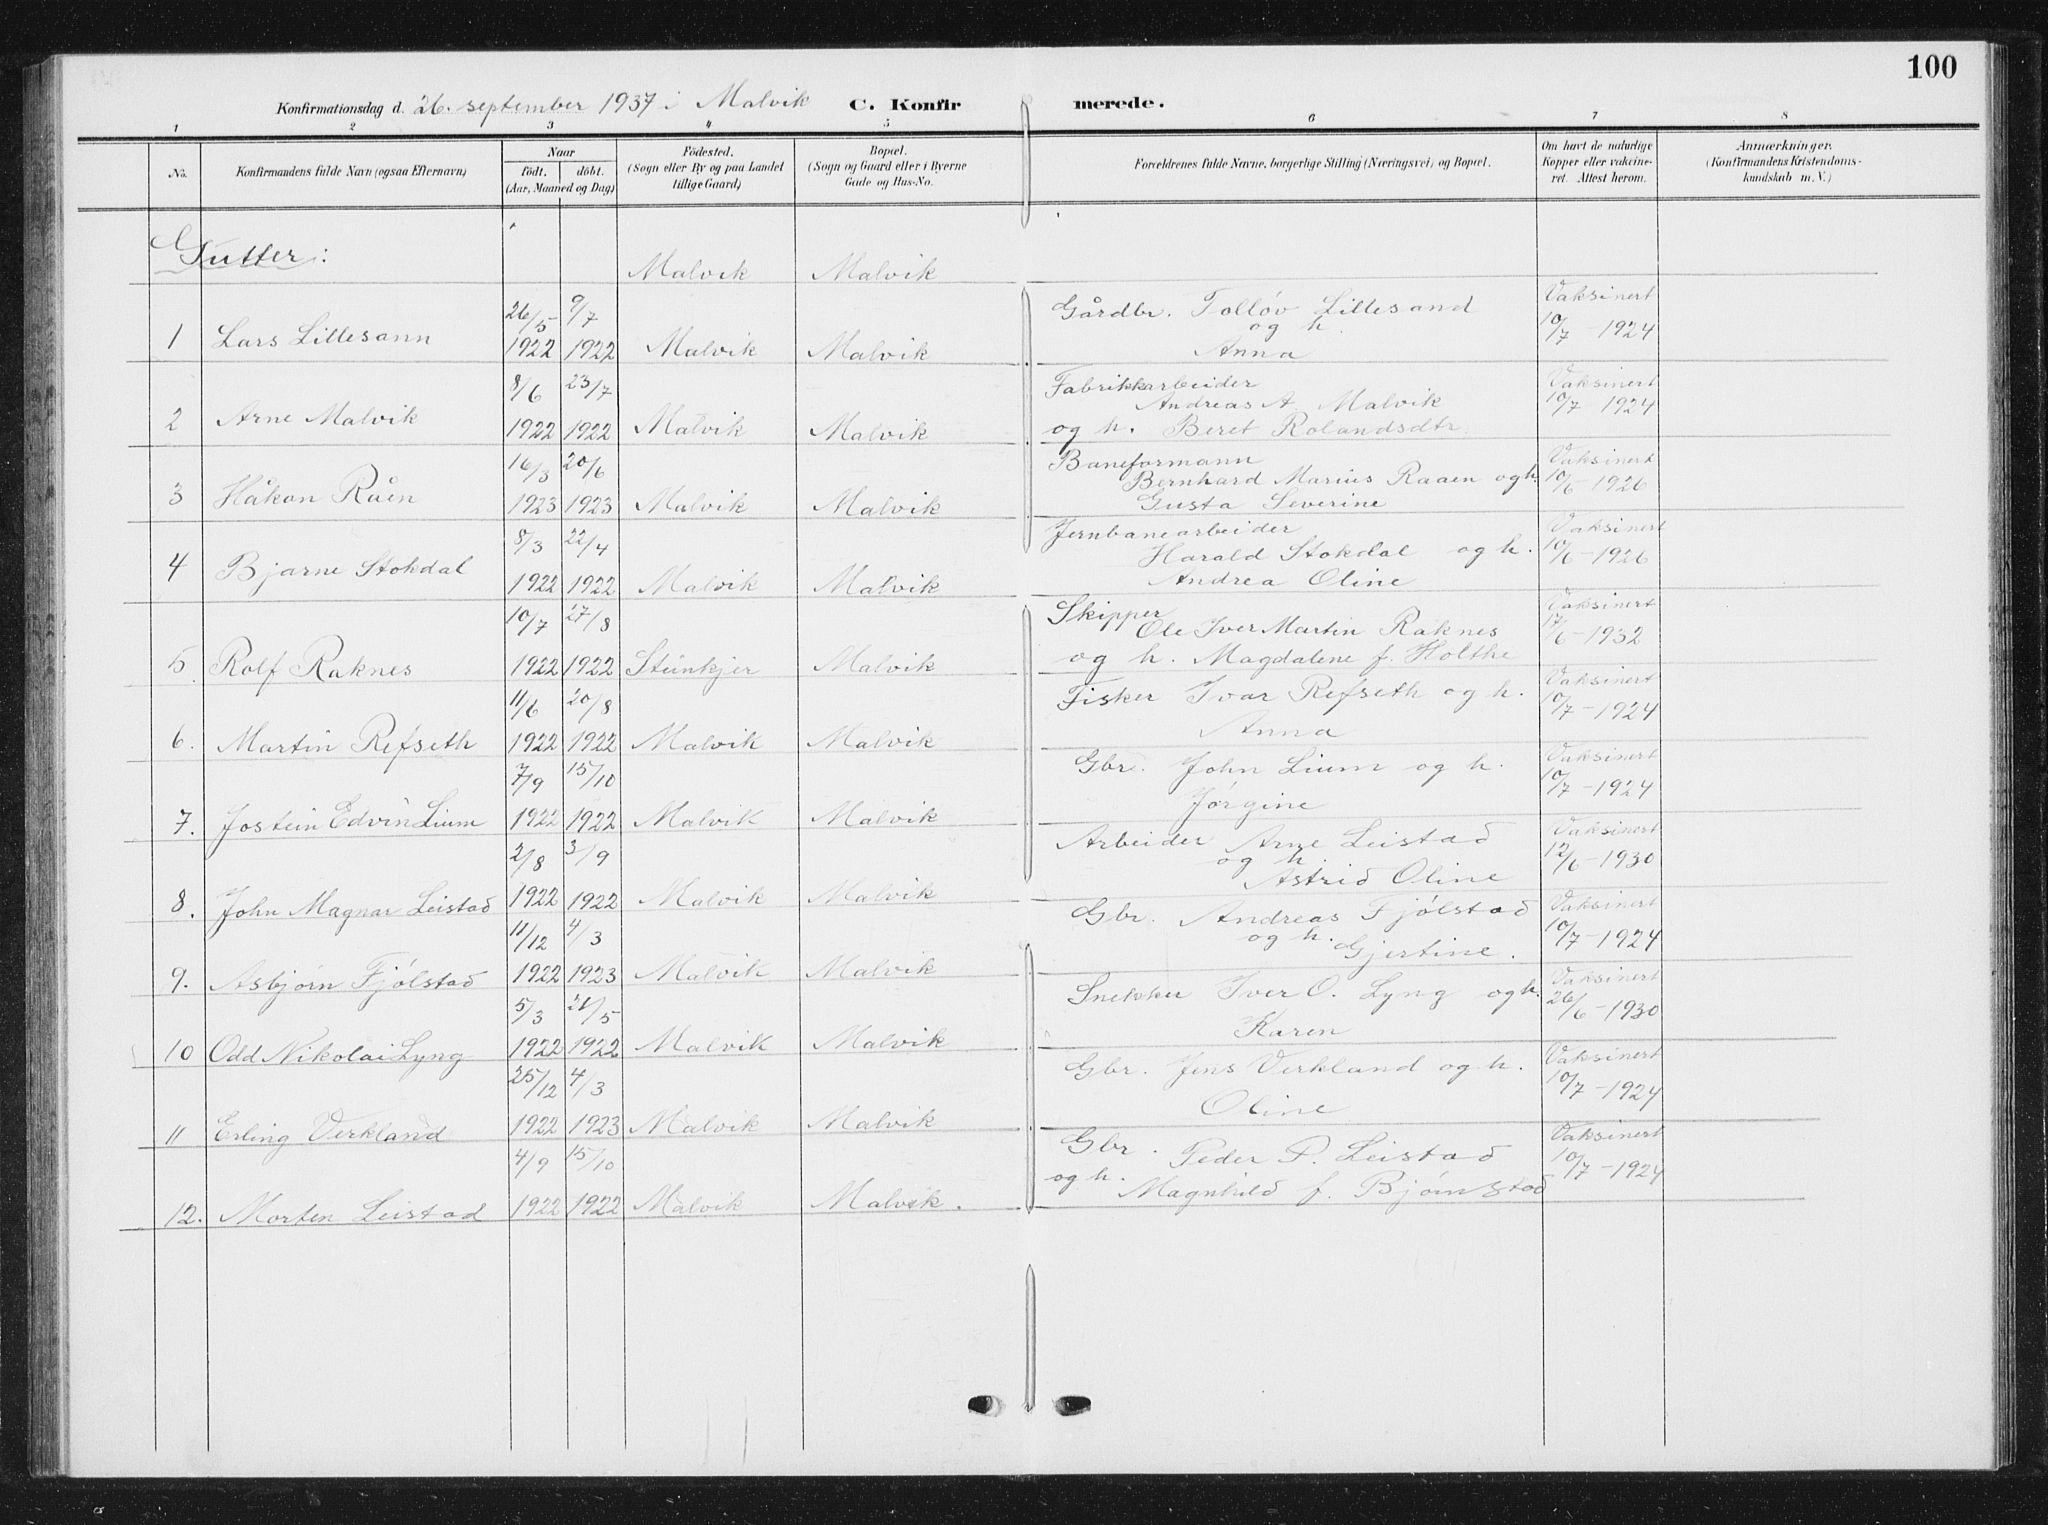 100
Konfirmationsdag d. 26. september 1937 i Malvik C. Konfirmerede.
1 2 3 4 5 6 7 8
No. Konfirmandens fulde Navn (ogsaa Efternavn) Naar født. døbt. (Aar, Maaned og Dag) Fødested. (Sogn eller By og paa Landet tillige Gaard) Bopæl. (Sogn og Gaard eller i Byerne Gade og Hus-No. Forældrenes fulde Navne, borgerlige Stilling (Næringsvei) og Bopæl. Om havt de naturlige Kopper eller vakcineret. Attest herom. Anmærkninger. (Konfirmandens Kristendomskundskab m. V.)
Gutter: Malvik Malvik
26/5 9/7 Gårdbr. Tolløv Lillesand Vaksinert
og h. 10/7 - 1924
1 Lars Lillesann 1922 1922 Malvik Malvik Anna
8/6 23/7 Fabrikkarbeider Vaksinert
Andreas A Malvik 10/7 1924
2 Arne Malvik 1922 1922 Malvik Malvik og h. Beret Rolandsdtr.
16/3 20/6 Baneformann Vaksinert
Bernhard Marius Raaen og h. 10/6 - 1926
3 Håkon Råen 1923 1923 Malvik Malvik Gusta Severine
8/3 22/4 Jernbanearbeider Vaksinert
Harald Stokdal og h. 10/6 - 1926
4 Bjarne Stokdal 1922 1922 Malvik Malvik Andrea Oline
10/7 27/8 Skipper Vaksinert
Ole Iver Martin Raknes 17/6 - 1932
5. Rolf Raknes 1922 1922 Steinkjer Malvik og h. Magdalene f. Holthe
11/6 20/8 Fisker Ivar Refseth og h. Vaksinert
10/7 - 1924
6. Martin Refseth 1922 1922 Malvik Malvik Anna
7/9 15/10 Gbr. John Lium og h. Vaksinert
10/7 - 1924
7. Jostein Edvin Lium 1922 1922 Malvik Malvik Jørgine
2/8 3/9 Arbeider Arne Leistad Vaksinert
og h. 12/6 - 1930
8. John Magnar Leistad 1922 1922 Malvik Malvik Astrid Oline
11/12 4/3 Gbr. Andreas Fjølstad Vaksinert
og h. 10/7 - 1924
9. Asbjørn Fjølstad 1922 1923 Malvik Malvik Gjertine.
5/3 21/5 Snekker Iver O. Lyng og h. Vaksinert
26/6 - 1930
10 Odd Nikolai Lyng 1922 1922 Malvik Malvik Karen
25/12 4/3 Gbr. Jens Verkland og h. Vaksinert
10/7 - 1924
11 Erling Verkland 1922 1923 Malvik Malvik Oline
4/9 15/10 Gbr. Peder P. Leistad Vaksinert
10/7 - 1924
12. Morten Leistad 1922 1922 Malvik Malvik. og h. Magnhild f. Bjørnstad